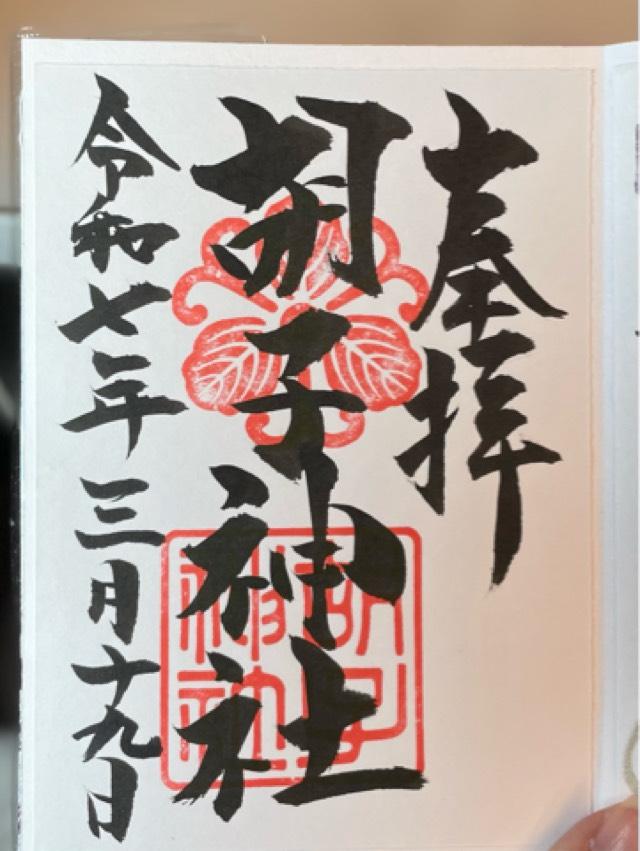 奉拝
胡子神社
胡子神社
令和七年三月十九日